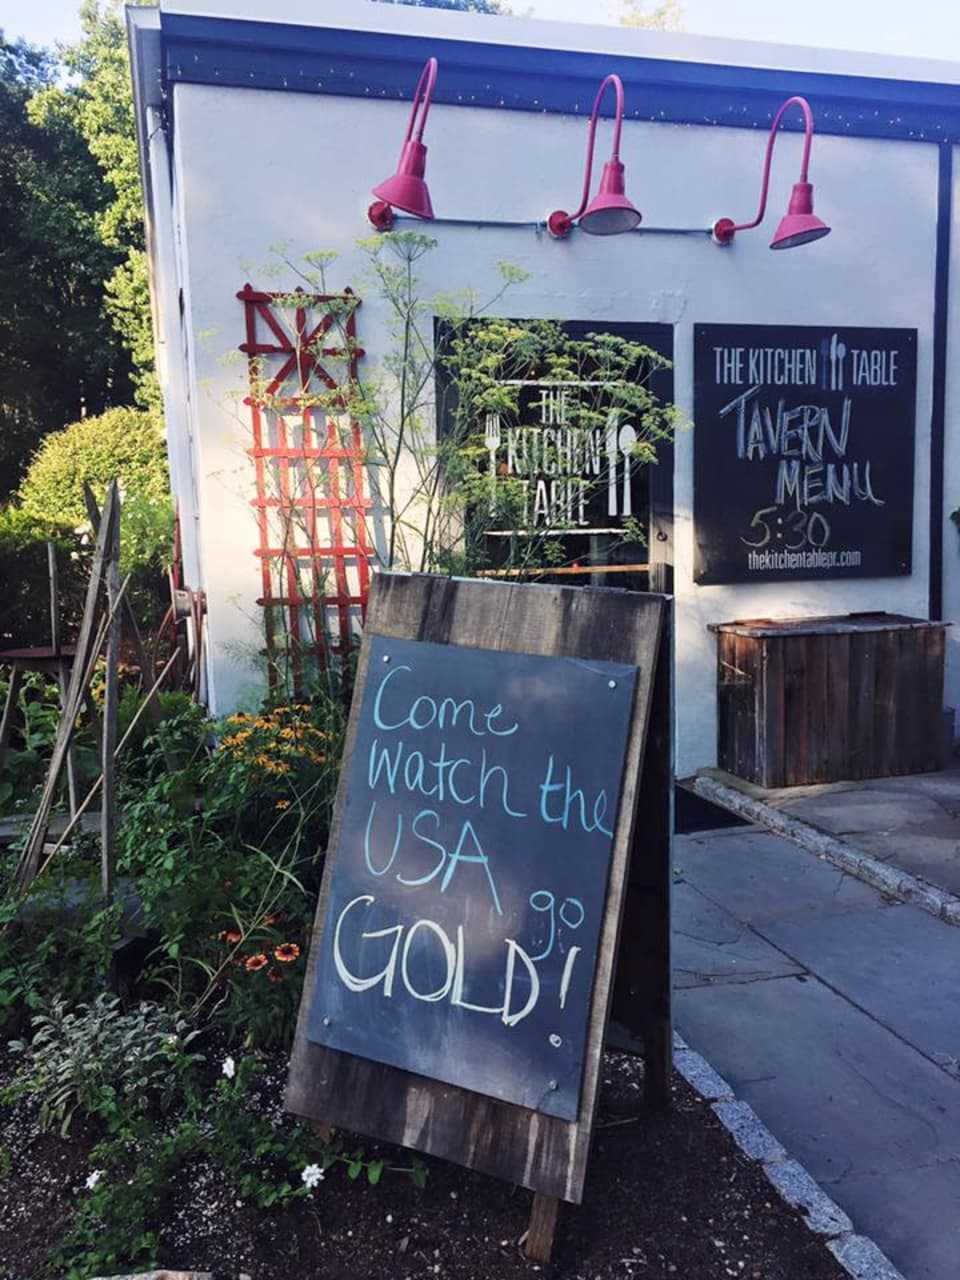 THE
KITCHEN
TABLE
THE KITCHEN TABLE
TAVERN
MENU
5:30
thekitchentablepr.com
Come
watch the
USA
go
GOLD!